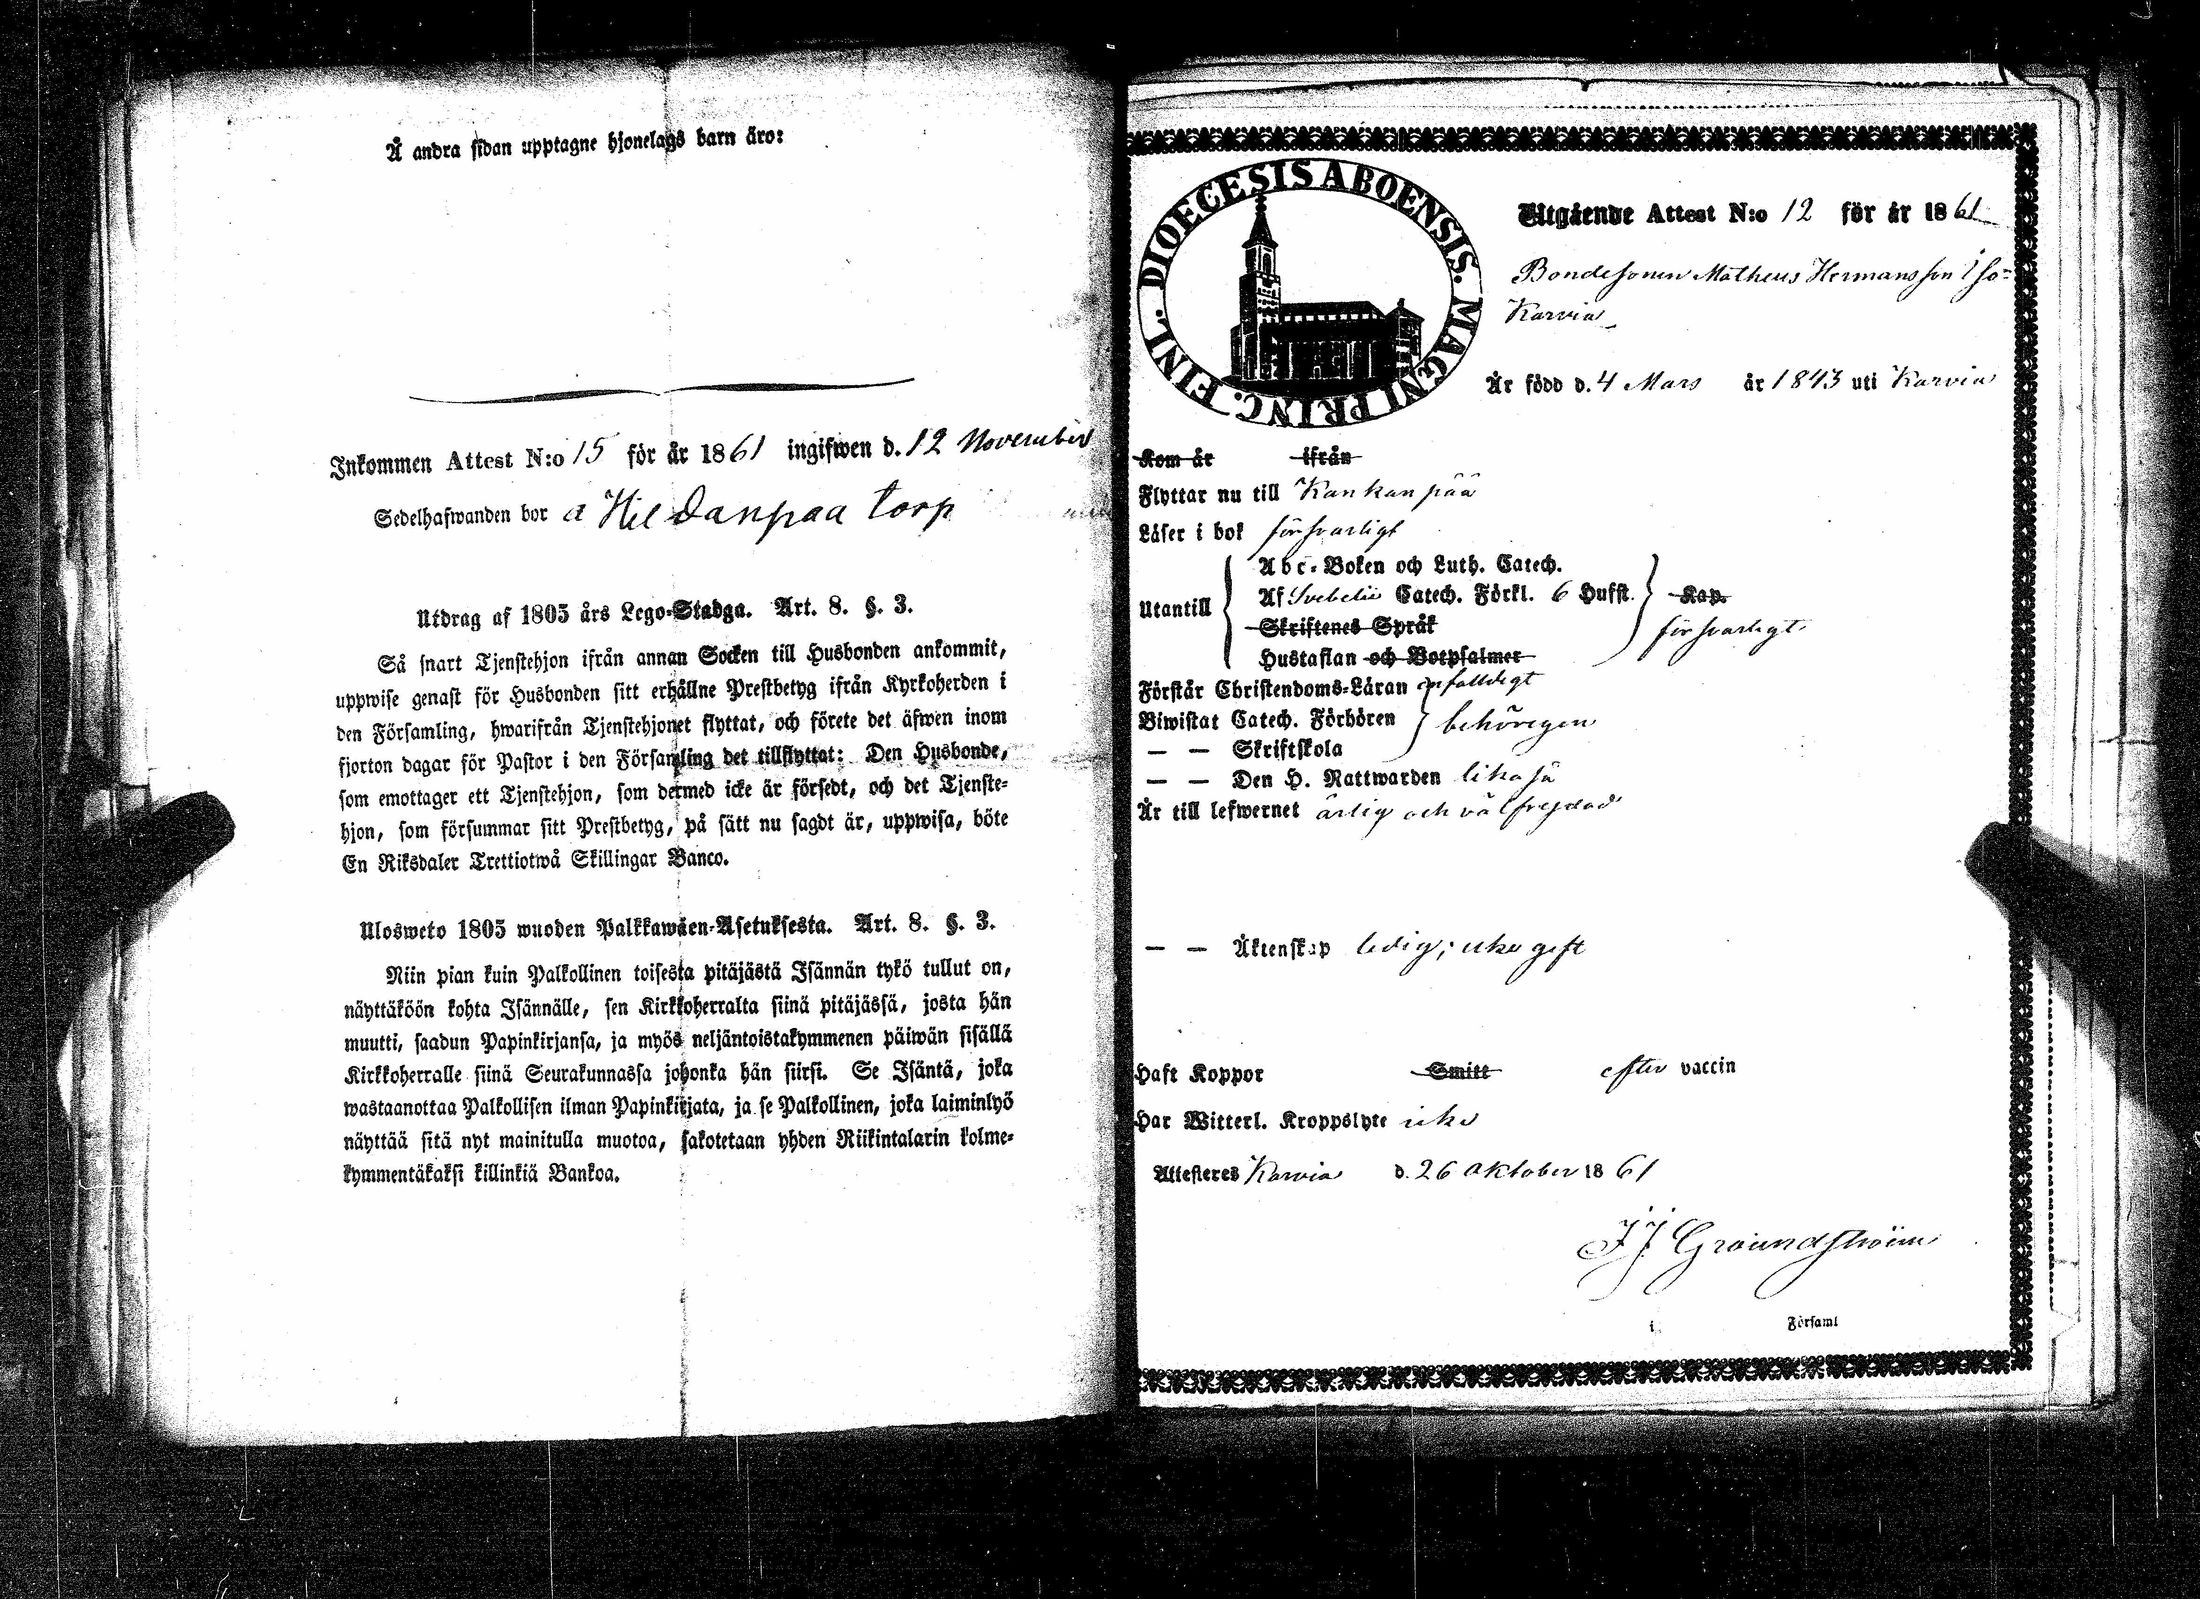 Å andra sidan upptagne hjonelags barn äro:
Inkommen Attest N:o 15 för år 1861 ingifwen d. 12 November
Sedelhafwanden bor å Hildanpää torp
Utdrag af 1805 års Lego-Stadga. Art. 8. §. 3.
Så snart Tjenstehjon ifrån annan Socken till Husbonden ankommit,
uppwise genast för Husbonden sitt erhållne Prestbetyg ifrån Kyrkoherden i
den Församling, hwarifrån Tjenstehjonet flyttat, och förete det äfwen inom
fjorton dagar för Pastor i den Församling det tillflyttat: Den Husbonde,
som emottager ett Tjenstehjon, som dermed icke är försedt, och det Tjenste-
hjon, som försummar sitt Prestbetyg, på sätt nu sagdt är, uppwisa, böte
En Riksdaler Trettiotwå Skillingar Banco.
Ulosweto 1805 wuoden Palkkawäen-Asetuksesta. Art. 8. §. 3.
Niin pian kuin Palkollinen toisesta pitäjästä Isännän tykö tullut on,
näyttäköön kohta Isännälle, sen Kirkkoherralta siinä pitäjässä, josta hän
muutti, saadun Papinkirjansa, ja myös neljäntoistakymmenen päiwän sisällä
Kirkkoherralle siinä Seurakunnassa johonka hän siirsi. Se Isäntä, joka
wastaanottaa Palkollisen ilman Papinkirjata, ja se Palkollinen, joka laiminlyö
näyttää sitä nyt mainitulla muotoa, sakotetaan yhden Riikintalarin kolme-
kymmentäkaksi killinkiä Bankoa.
DIOECESIS ABOENSIS. MAGNI PRINC. FINL.
Utgående Attest N:o 12 för år 1861
Bondesonen Matheus Hermansson Iso-
Karvia
Är född d. 4 Mars år 1843 uti Karvia
Kom år ifrån
Flyttar nu till Kankanpää
Läser i bok försvarligt
Utantill
Abc-Boken och Luth. Catech.
Af Svebelii Catech. Förkl. 6 Hufst. Kap.
Skriftenes Språk försvarligt
Hustaflan och Botpsalmer
Förstår Christendoms-Läran enfaldigt
Biwistat Catech. Förhören behörigen
— — Skriftskola
— — Den H. Nattwarden likaså
Är till lefwernet ärlig och välfrejdad
— — Äktenskap ledig; icke gift
Haft Koppor Smitt efter vaccin
Har Witterl. Kroppslyte icke
Attesteres Karvia d. 26 Oktober 1861
J J Groundström
i Församl